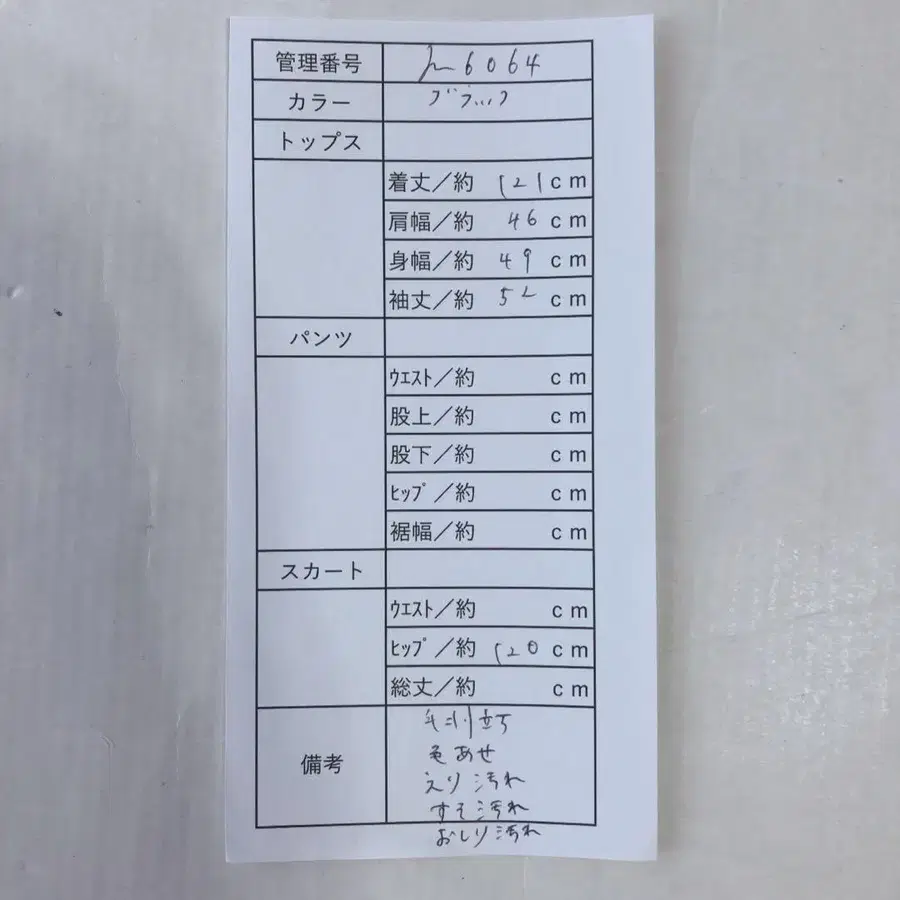 管理番号 6064
カラー ブラック
トップス
着丈／約 121cm
肩幅／約 46 cm
身幅／約 49 cm
袖丈／約 52 cm
パンツ
ｳｴｽﾄ／約 cm
股上／約 cm
股下／約 cm
ﾋｯﾌﾟ／約 cm
裾幅／約 cm
スカート
ｳｴｽﾄ／約 cm
ﾋｯﾌﾟ／約 120 cm
総丈／約 cm
備考
毛羽立ち
色あせ
えり汚れ
すそ汚れ
おしり汚れ